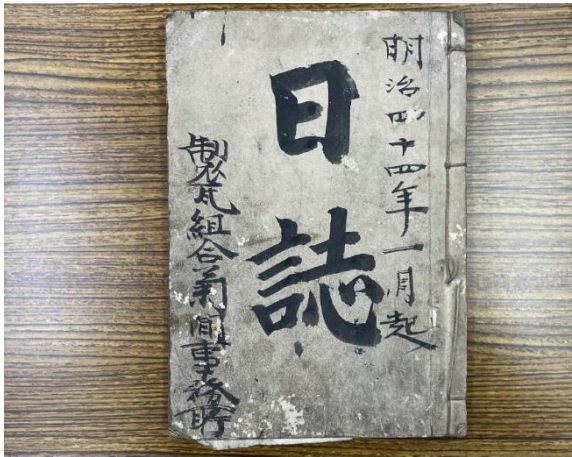 明治四十四年一月起
日誌
製瓦組合菊間事務所